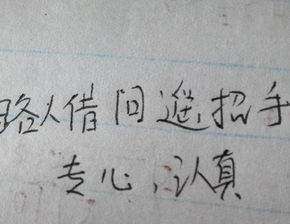 路人借问遥招手
专心、认真